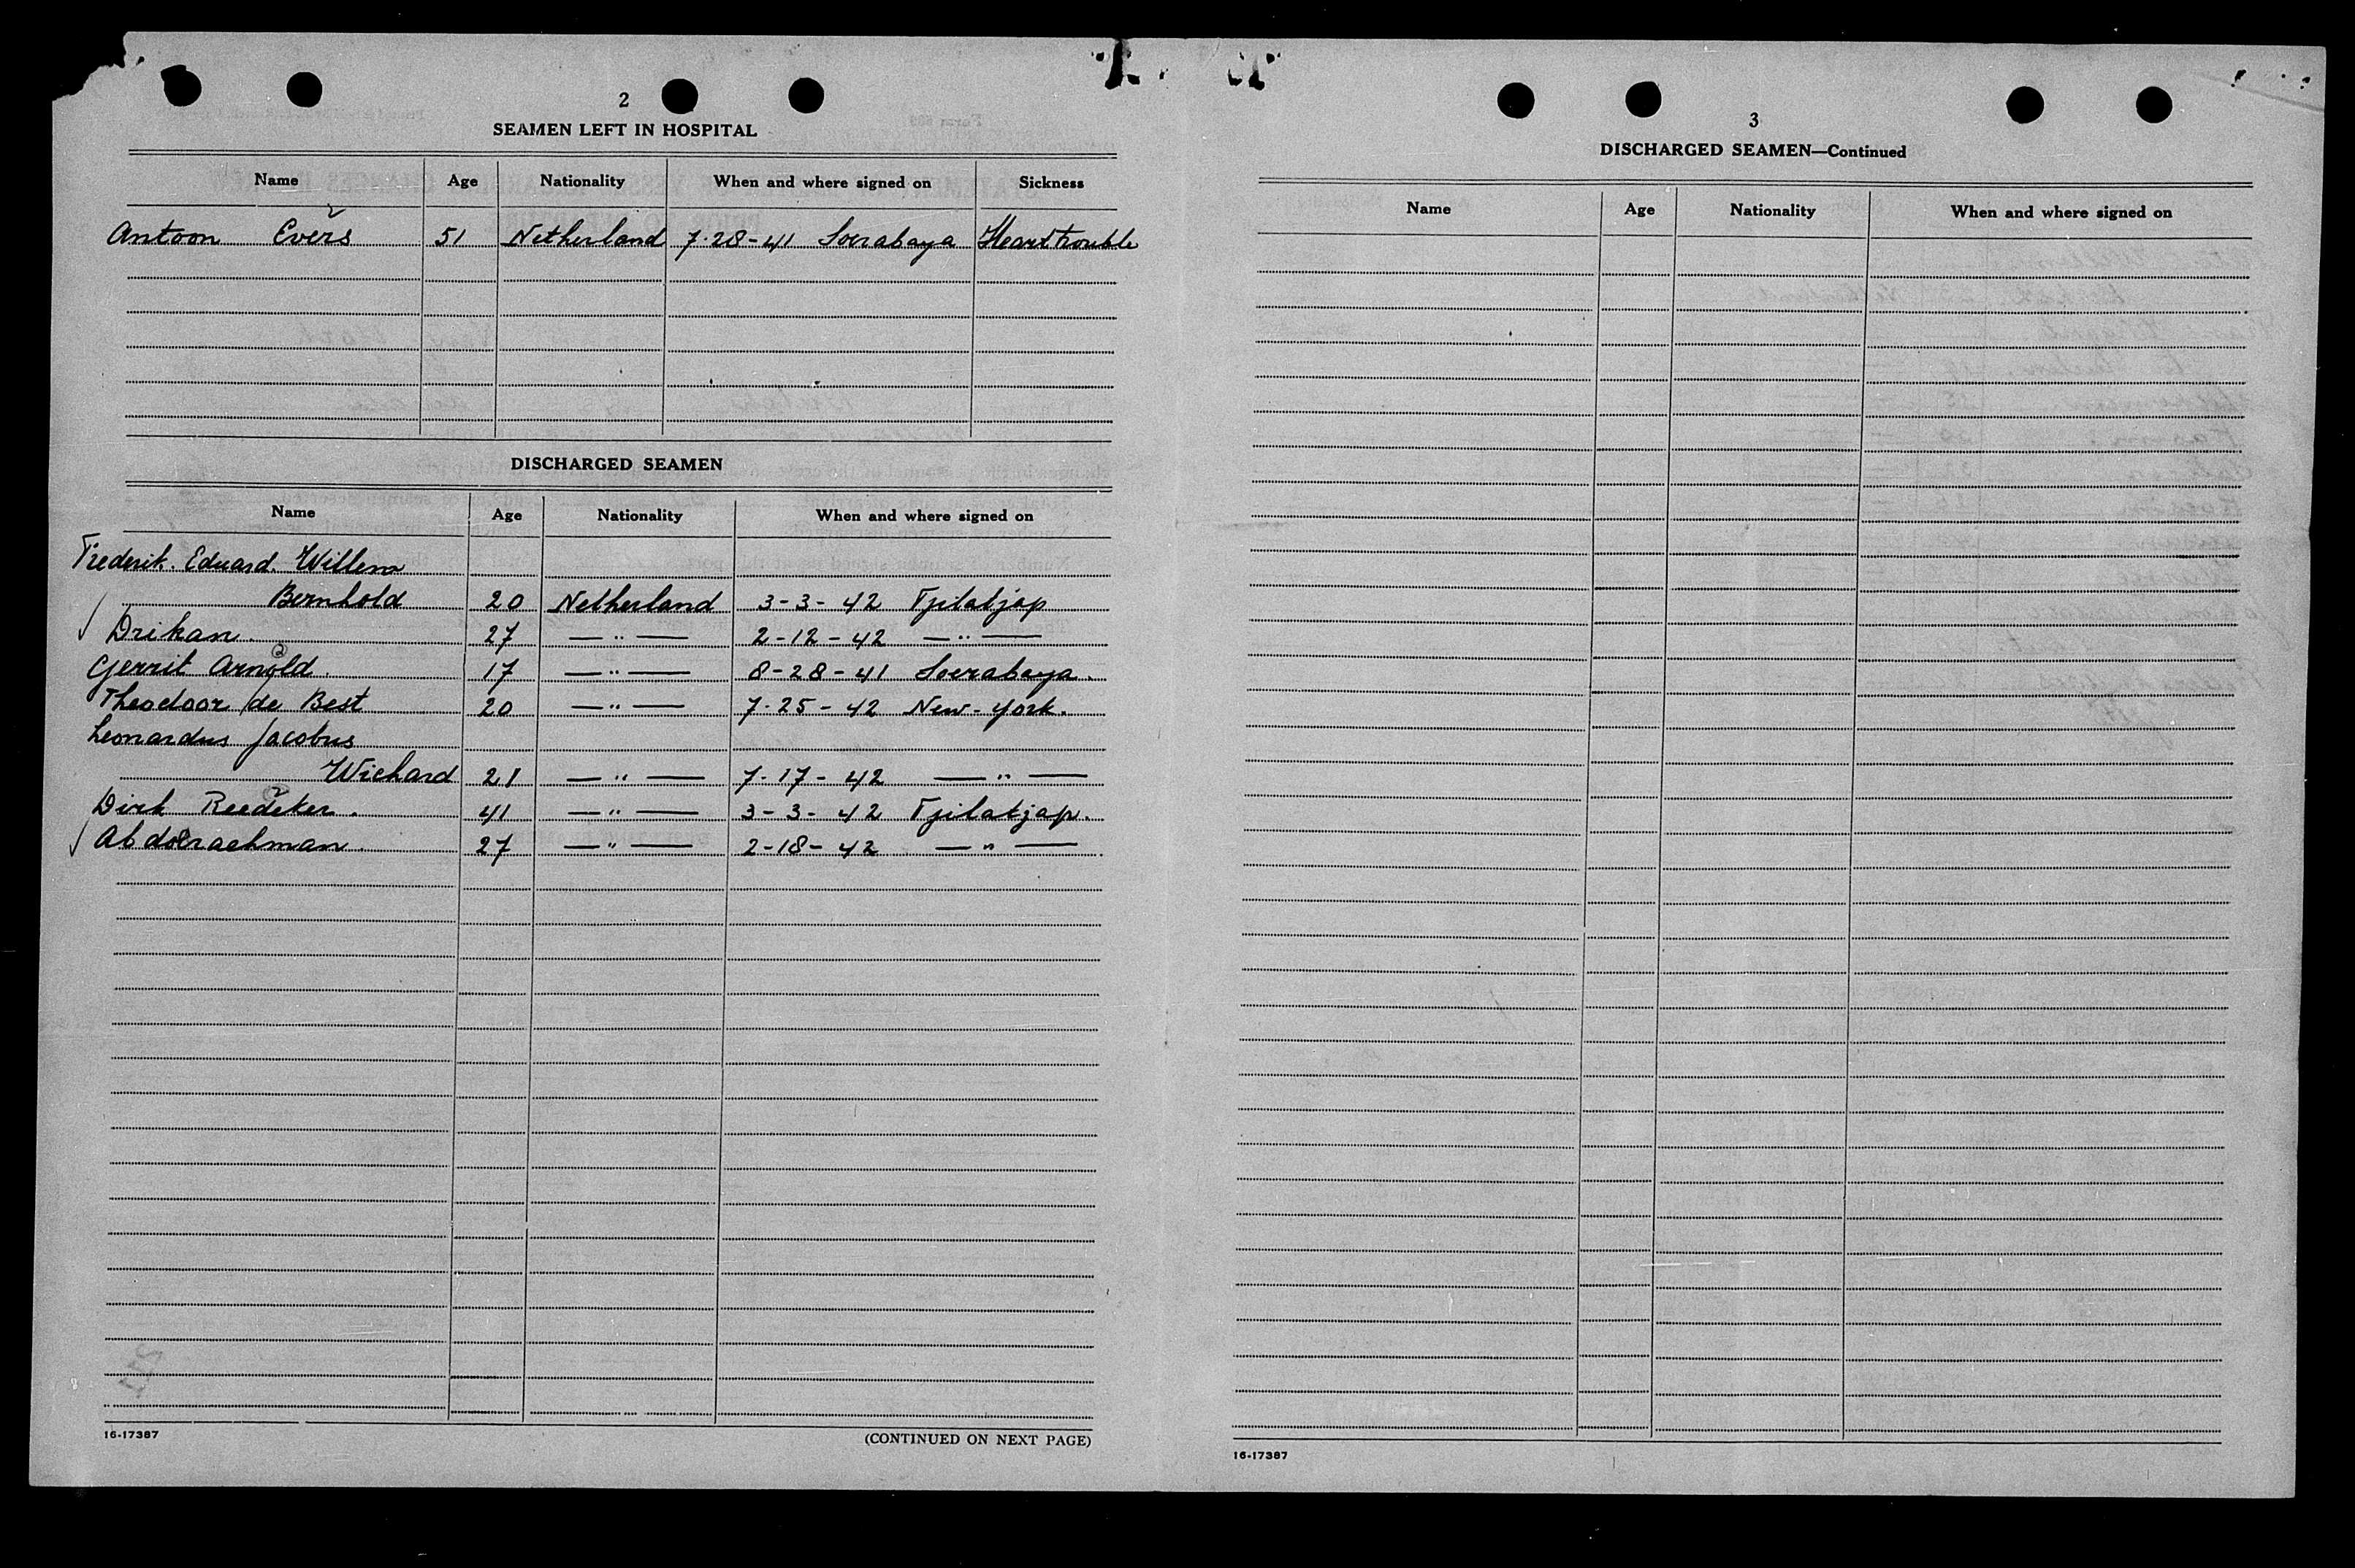 2
SEAMEN LEFT IN HOSPITAL
Name Age Nationality When and where signed on Sickness
Antoon Evers 51 Netherland 7-28-41 Soerabaya Heart trouble
DISCHARGED SEAMEN
Name Age Nationality When and where signed on
Frederik. Eduard. Willem
Bernhold 20 Netherland 3-3-42 Tjilatjap
Drikan. 27 —"— 2-12-42 —"—
Gerrit Arnold. 17 —"— 8-28-41 Soerabaya.
Theodoor de Best 20 —"— 7-25-42 New-York.
Leonardus Jacobus
Wichard 21 —"— 7-17-42 —"—
Dirk Reedeker. 41 —"— 3-3-42 Tjilatjap.
Abdoerachman. 27 —"— 2-18-42 —"—
16-17387
(CONTINUED ON NEXT PAGE)
3
DISCHARGED SEAMEN—Continued
Name Age Nationality When and where signed on
16-17387